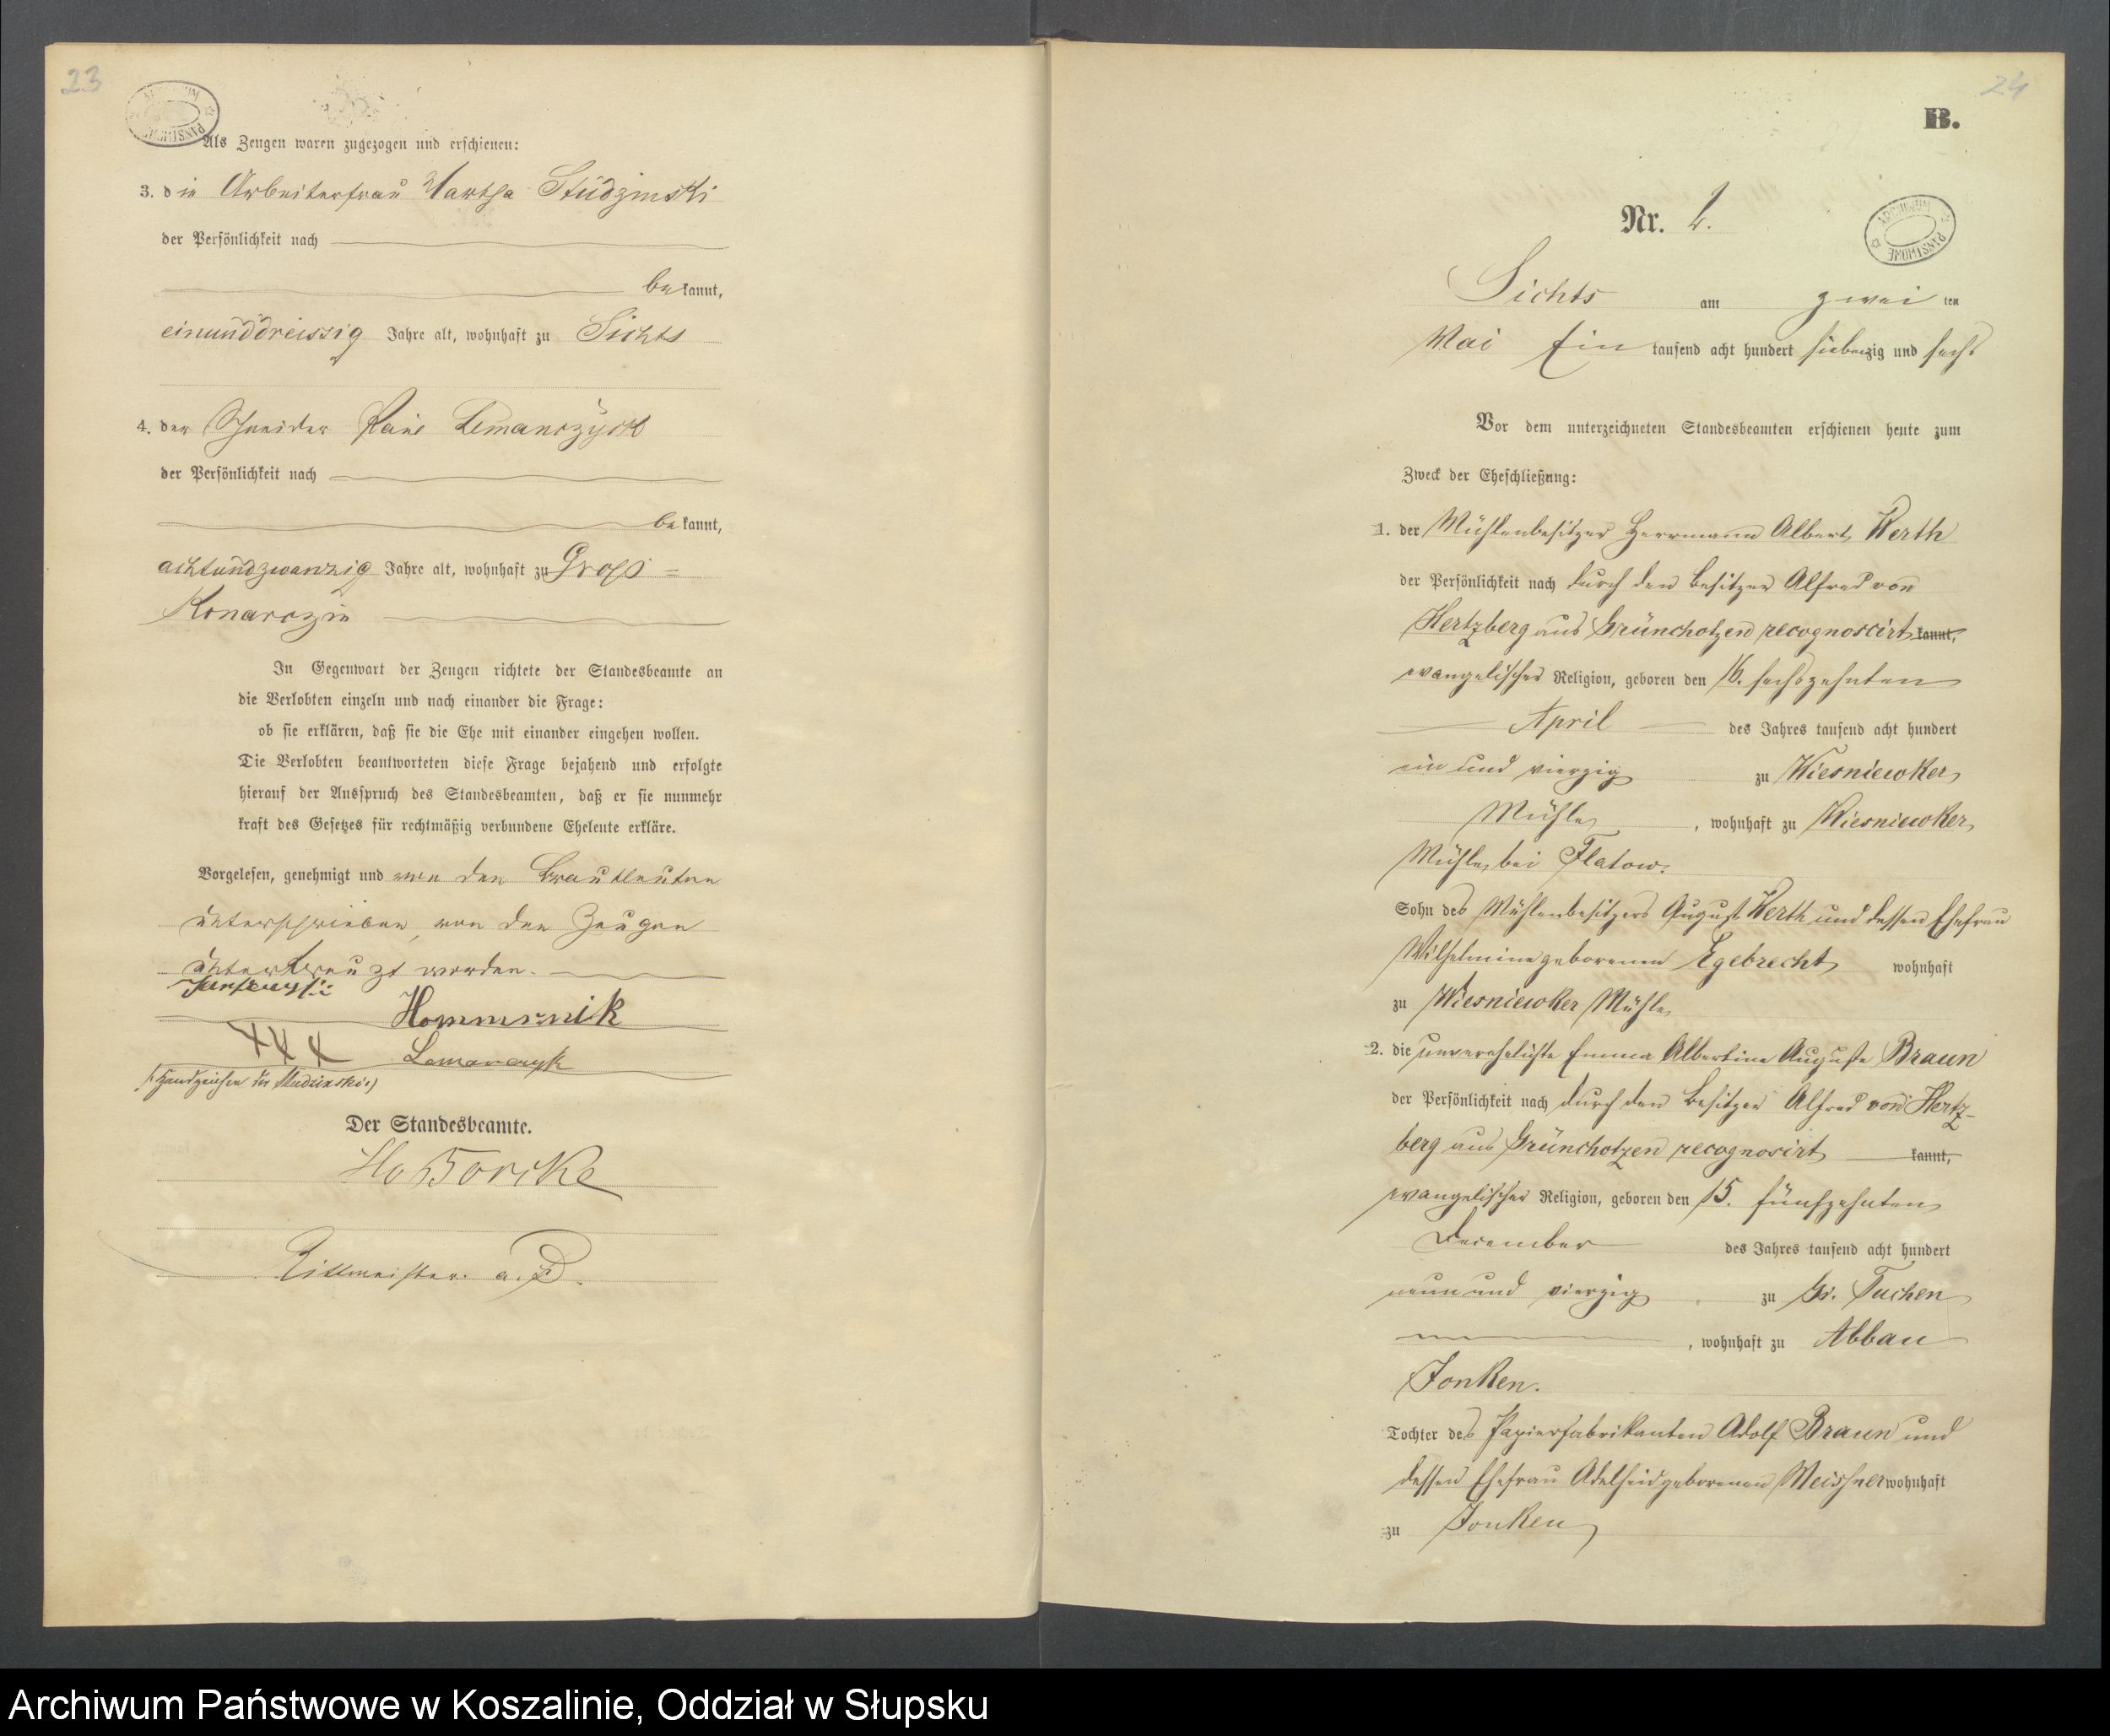 23
ARCHIWUM PAŃSTWOWE
Als Zeugen waren zugezogen und erschienen:
3. die Arbeiterfrau Martha Studzinski
der Persönlichkeit nach
bekannt,
einunddreissig Jahre alt, wohnhaft zu Sichts
4. der Schneider Lemanczyck
der Persönlichkeit nach
bekannt,
achtundzwanzig Jahre alt, wohnhaft zu Groß-
Konarczin
In Gegenwart der Zeugen richtete der Standesbeamte an
die Verlobten einzeln und nach einander die Frage:
ob sie erklären, daß sie die Ehe mit einander eingehen wollen.
Die Verlobten beantworteten diese Frage bejahend und erfolgte
hierauf der Ausspruch des Standesbeamten, daß er sie nunmehr
kraft des Gesetzes für rechtmäßig verbundene Eheleute erkläre.
Vorgelesen, genehmigt und von den Brautleuten
unterschrieben, von den Zeugen
unterkreuzt worden.
xxx
(Handzeichen der Studzinski)
Der Standesbeamte.
Rittmeister a. D.
24
B.
Nr. 2.
ARCHIWUM PAŃSTWOWE
Sichts am zwei ten
Mai Ein tausend acht hundert siebenzig und sechs
Vor dem unterzeichneten Standesbeamten erschienen heute zum
Zweck der Eheschließung:
1. der Mühlenbesitzer Herrmann Albert Werth
der Persönlichkeit nach durch den Besitzer Alfred von
Hertzberg aus Grünchotzen recognoscirt kannt,
evangelischer Religion, geboren den 16. sechszehnten
April des Jahres tausend acht hundert
ein und vierzig zu Wiesniewker
Mühle, wohnhaft zu Wiesniewker
Mühle bei Flatow.
Sohn des Mühlenbesitzers August Werth und dessen Ehefrau
Wilhelmine geborenen Egebrecht wohnhaft
zu Wiesniewker Mühle
2. die unverehelichte Emma Albertine Auguste Braun
der Persönlichkeit nach durch den Besitzer Alfred von Hertz-
berg aus Grünchotzen recognosirt kannt,
evangelischer Religion, geboren den 15. fünfzehnten
December des Jahres tausend acht hundert
neun und vierzig zu Gr. Tuchen
, wohnhaft zu Abbau
Jonken.
Tochter des Papierfabrikanten Adolf Braun und
dessen Ehefrau Adelheid geborenen Meissner wohnhaft
zu Jonken
Archiwum Państwowe w Koszalinie, Oddział w Słupsku